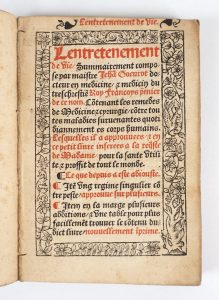 Lentretenement de vie.
Lentretenement
de vie / Summairement compo
se par maistre Jehā Goeurot do
cteur en medicine / ⁊ medicin du
treschrestiē Roy Françoys premier
de ce nom. Cōtenant les remedes
de Medicine ⁊ cyrurgie / cōtre tou
tes maladies survenantes quoti
diannement es corps humains.
Lesquelles il a approuvees ⁊ en
ce petit livre inserees a la reqste
de Madame / pour la sante utili
te ⁊ proffit de tout le monde.
Ce que depuis a este adiouste.
Itē ung regime singulier cō
tre peste / approuve sur plusieurs.
Itē en la marge plusieurs
additions / ⁊ une table pour plus
facillemēt trouver le cōtenu du
dict livre / nouvellement iprime.